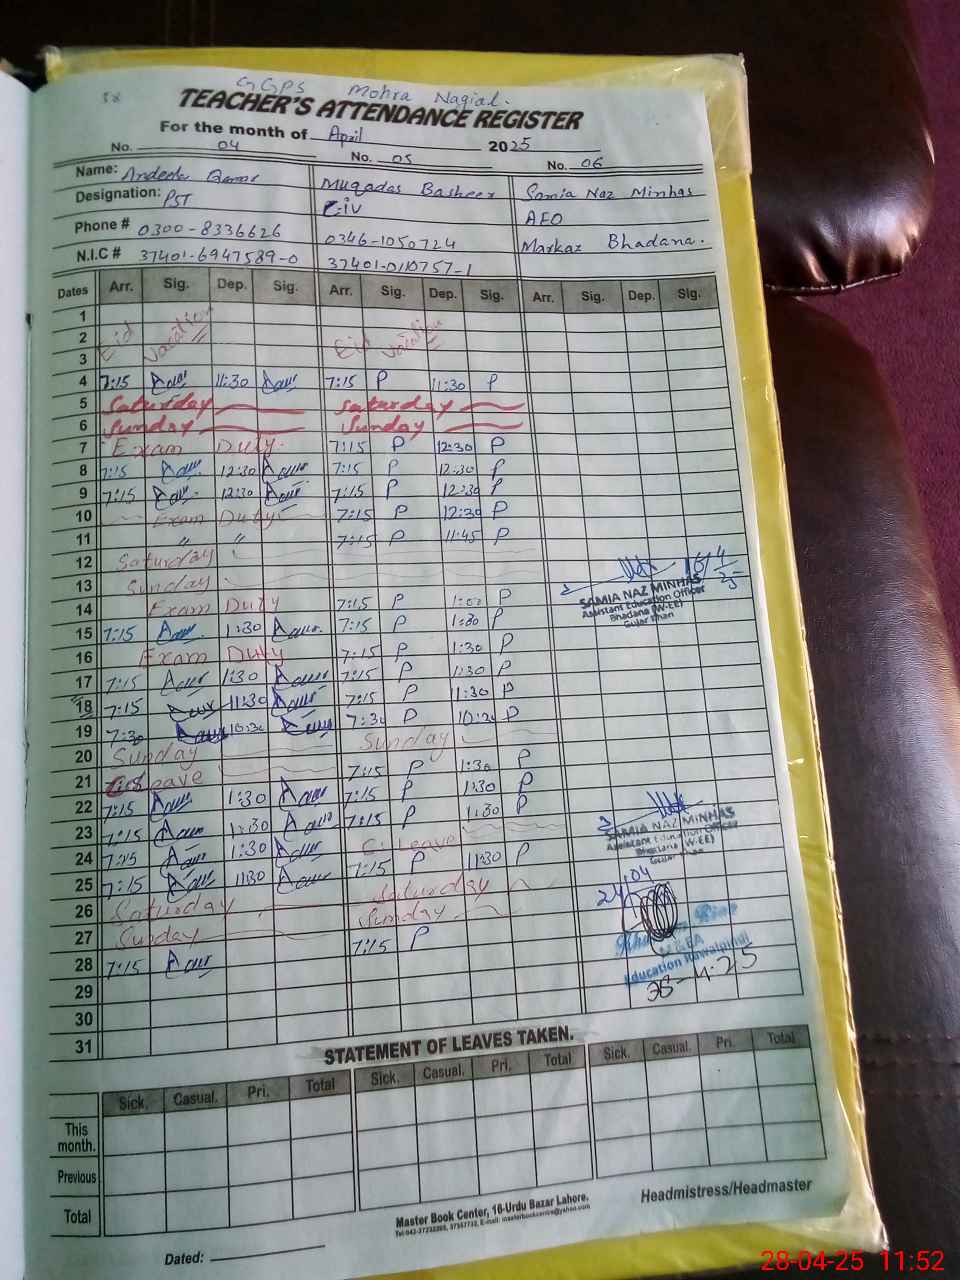 58 GGPS Mohra Nagial.
TEACHER'S ATTENDANCE REGISTER
For the month of April 2025
No. 04 No. 05 No. 06
Name: Andeela Muqadas Basheer Samia Naz Minhas
Designation: PST AEO
Phone # 0300-8336626 0346-1050724 Markaz Bhadana.
N.I.C # 37401-6947589-0 37401-0110757-1
Dates Arr. Sig. Dep. Sig. Arr. Sig. Dep. Sig. Arr. Sig. Dep. Sig.
1
2 Eid Vacation Eid Vacation
3
4 7:15 11:30 7:15 P 11:30 P
5 Saturday Saturday
6 Sunday Sunday
7 Exam Duty. 7:15 P 12:30 P
8 7:15 12:30 7:15 P 12:30 P
9 7:15 12:30 7:15 P 12:30 P
10 Exam Duty 7:15 P 12:30 P
11 " " 7:15 P 11:45 P
12 Saturday
13 Sunday
SAMIA NAZ MINHAS
Assistant Education Officer
Bhadana (W-EE)
Gujar Khan
14 Exam Duty 7:15 P 1:00 P
15 7:15 1:30 7:15 P 1:30 P
16 Exam Duty 7:15 P 1:30 P
17 7:15 1:30 7:15 P 1:30 P
18 7:15 11:30 7:15 P 11:30 P
19 7:30 10:30 7:30 P 10:30 P
20 Sunday Sunday
21 Leave 7:15 P 1:30 P
22 7:15 1:30 7:15 P 1:30 P
23 7:15 1:30 7:15 P 1:30 P
SAMIA NAZ MINHAS
Assistant Education Officer
Bhadana (W-EE)
Gujar Khan
24 7:15 1:30 C. Leave
25 7:15 11:30 7:15 P 11:30 P
24/04
26 Saturday Saturday
27 Sunday Sunday
28 7:15 7:15 P
M&EA
Education Rawalpindi
28-4-25
29
30
31
STATEMENT OF LEAVES TAKEN.
Sick. Casual. Pri. Total Sick. Casual. Pri. Total Sick. Casual. Pri. Total
This month.
Previous
Total
Master Book Center, 16-Urdu Bazar Lahore.
Headmistress/Headmaster
Dated:
28-04-25 11:52